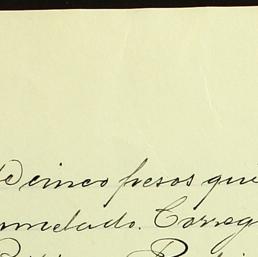 de cinco pesos que
nmelado. Correg